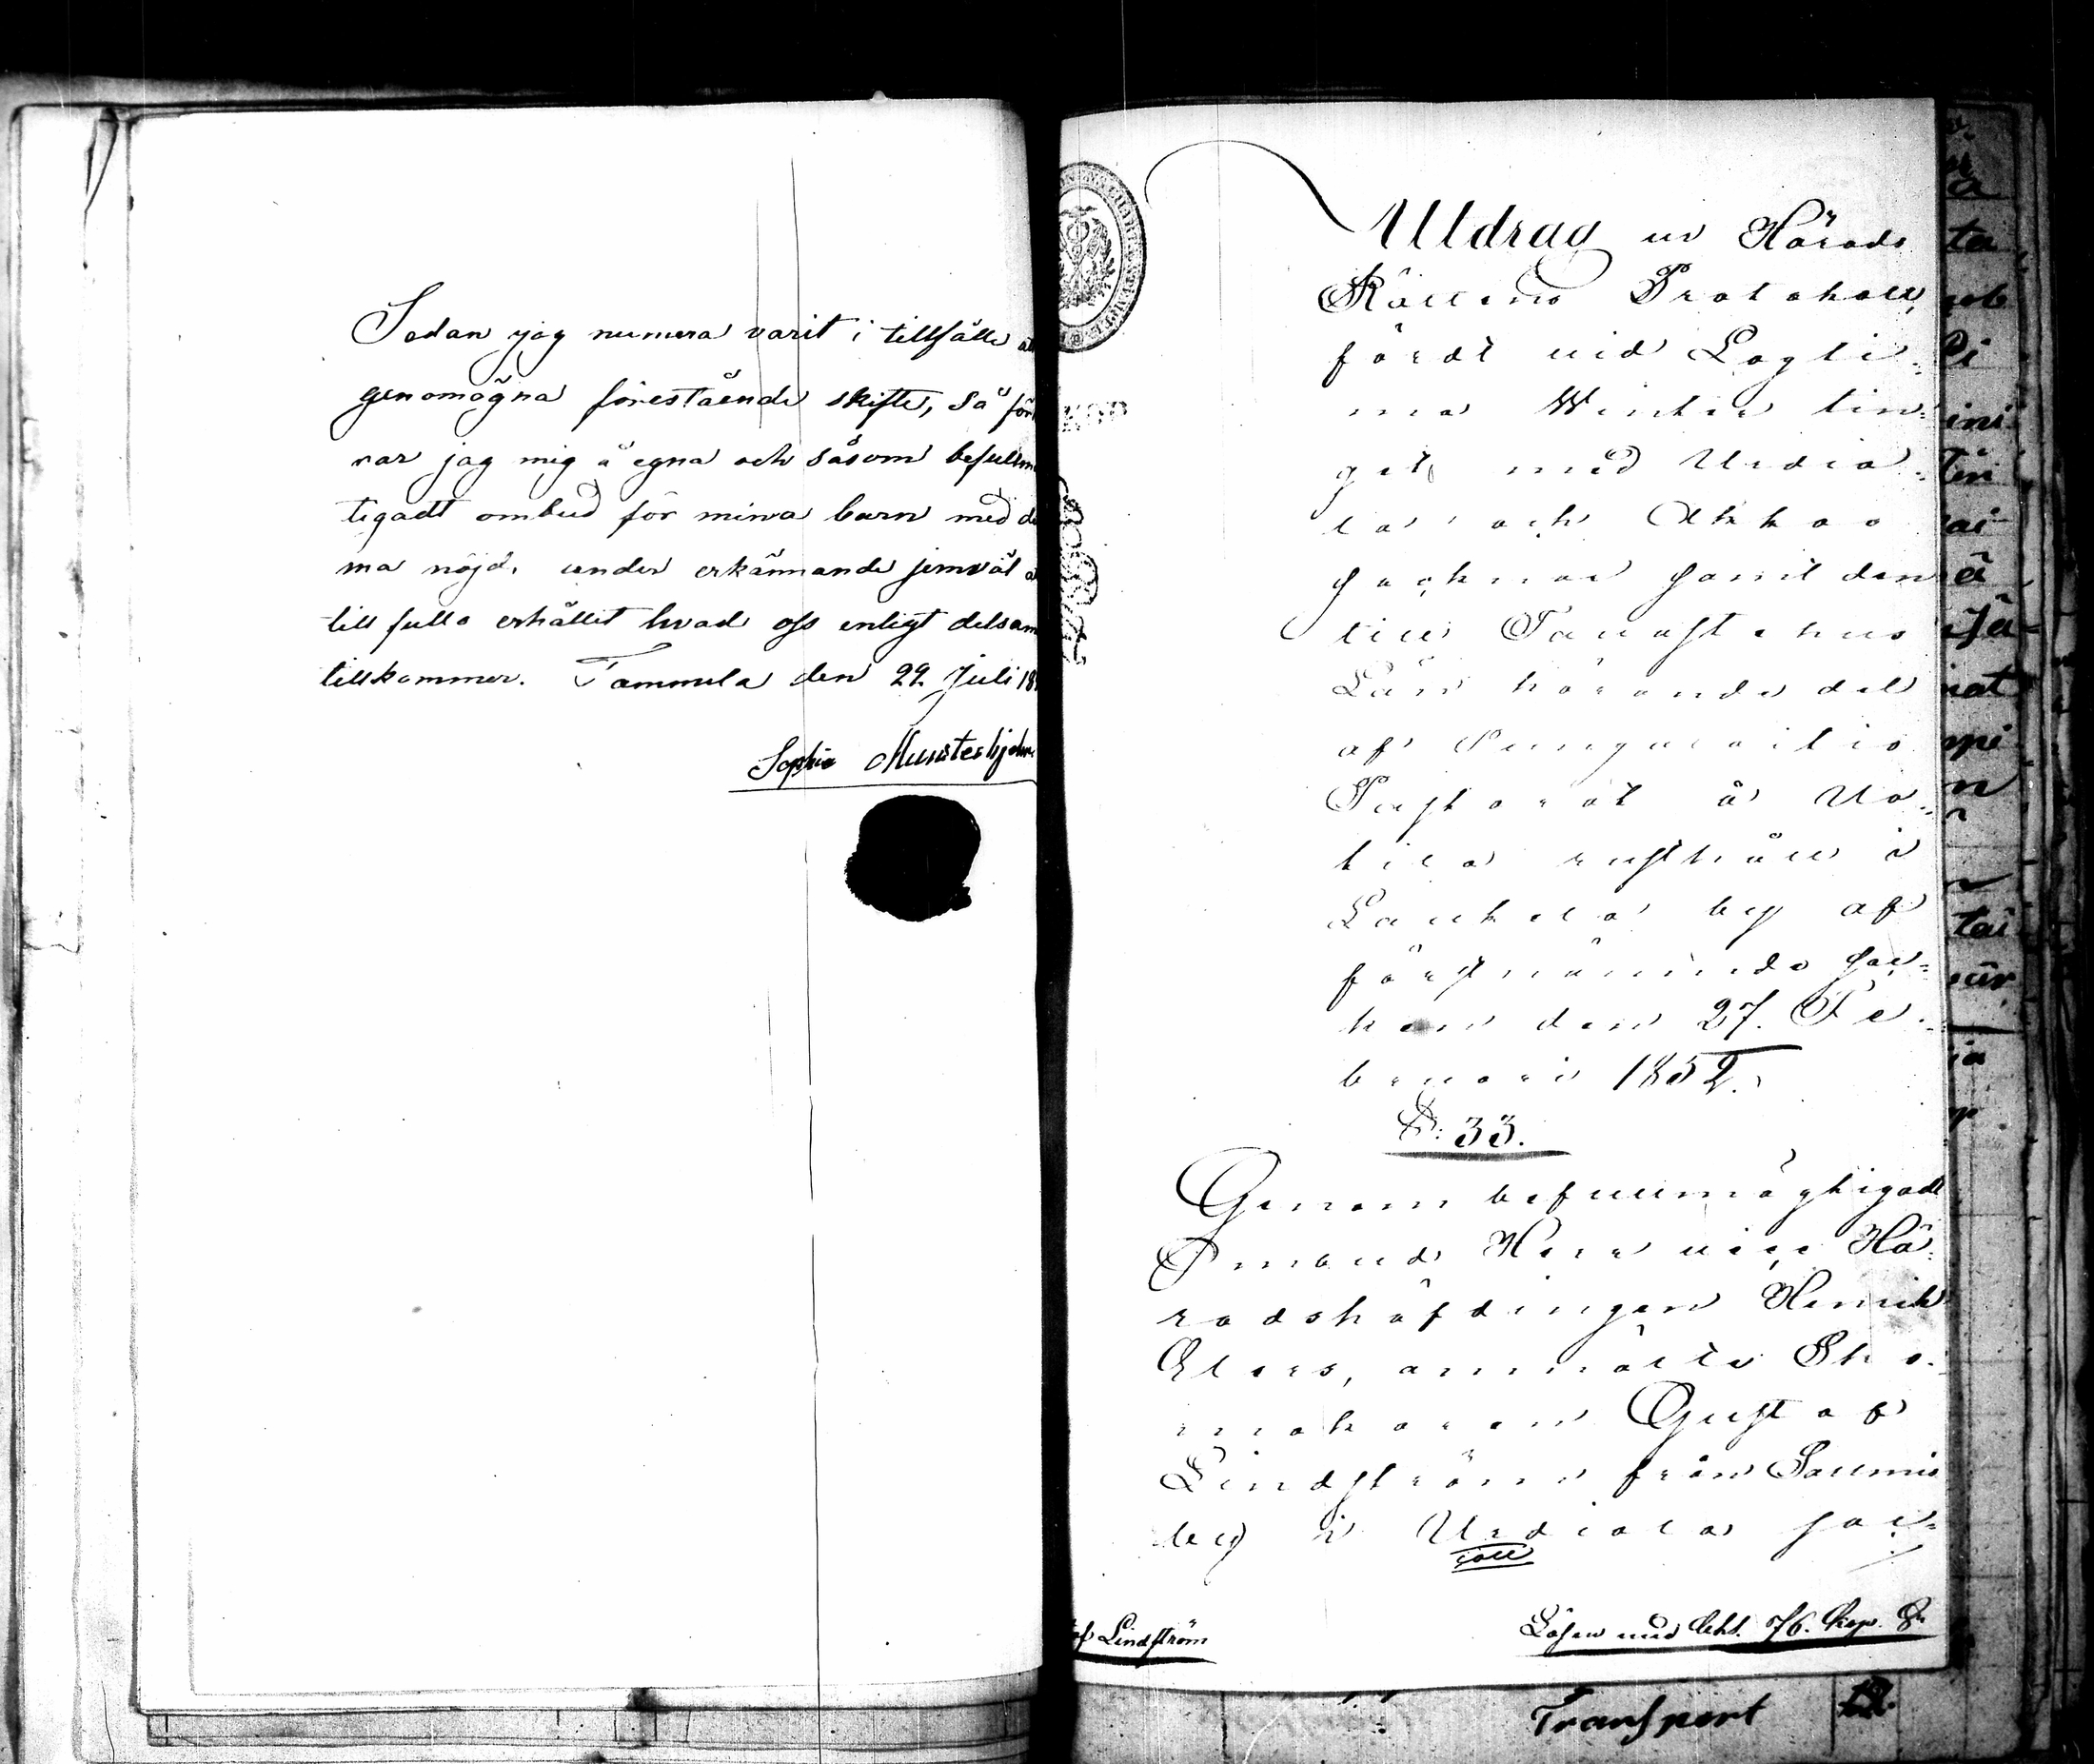 Sedan jag numera varit i tillfälle
genomögna förestående skifte, så för
rar jag mig å egna och såsom befullm
tigadt ombud för mina barn med de
ma nöjd, under erkännande jemväl
till fullo erhållet hvad oss enligt delsam
tillkommer. Tammela den 29. Juli 18
Sophia Munsterhjelm
Utdrag ur Härads
Rättens Protokoll,
fördt vid Lagti=
ma Winter tin=
get med Urdia=
la och Akkas
Socknar samt den
till Tavastehus
Län hörande del
af Pungalaitio
Pastorat å Uo=
tila rusthåll i
Laukela by af
förstnämnde Soc=
ken den 27. Fe=
bruari 1852.
§: 33.
Genom befullmägtigadt
Ombud Herr vice Hä=
radshöfdingen Henrik
Elers, anmälte Sko=
makaren Gustaf
Lindström från Salmis
by i Urdiala Soc=
coll
af Lindström
Lösen med Chl. 76. Kop. Sr.
Transport